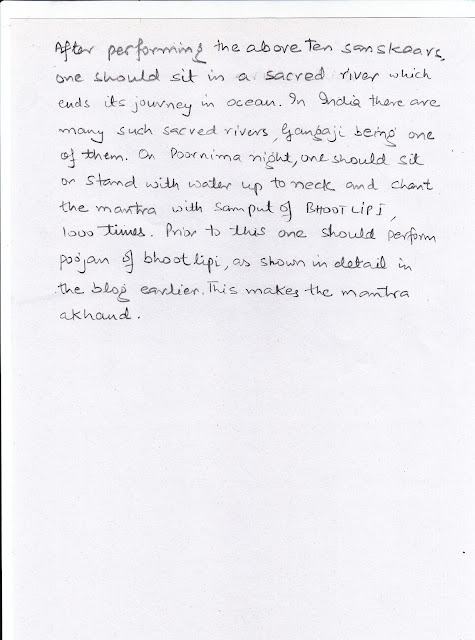 After performing the above Ten sanskaars,
one should sit in a sacred river which
ends its journey in ocean. In India there are
many such sacred rivers, Gangaji being one
of them. On Poornima night, one should sit
or stand with water up to neck and chant
the mantra with samput of BHOOTLIPI,
1000 times. Prior to this one should perform
poojan of bhootlipi, as shown in detail in
the blog earlier. This makes the mantra
akhand.